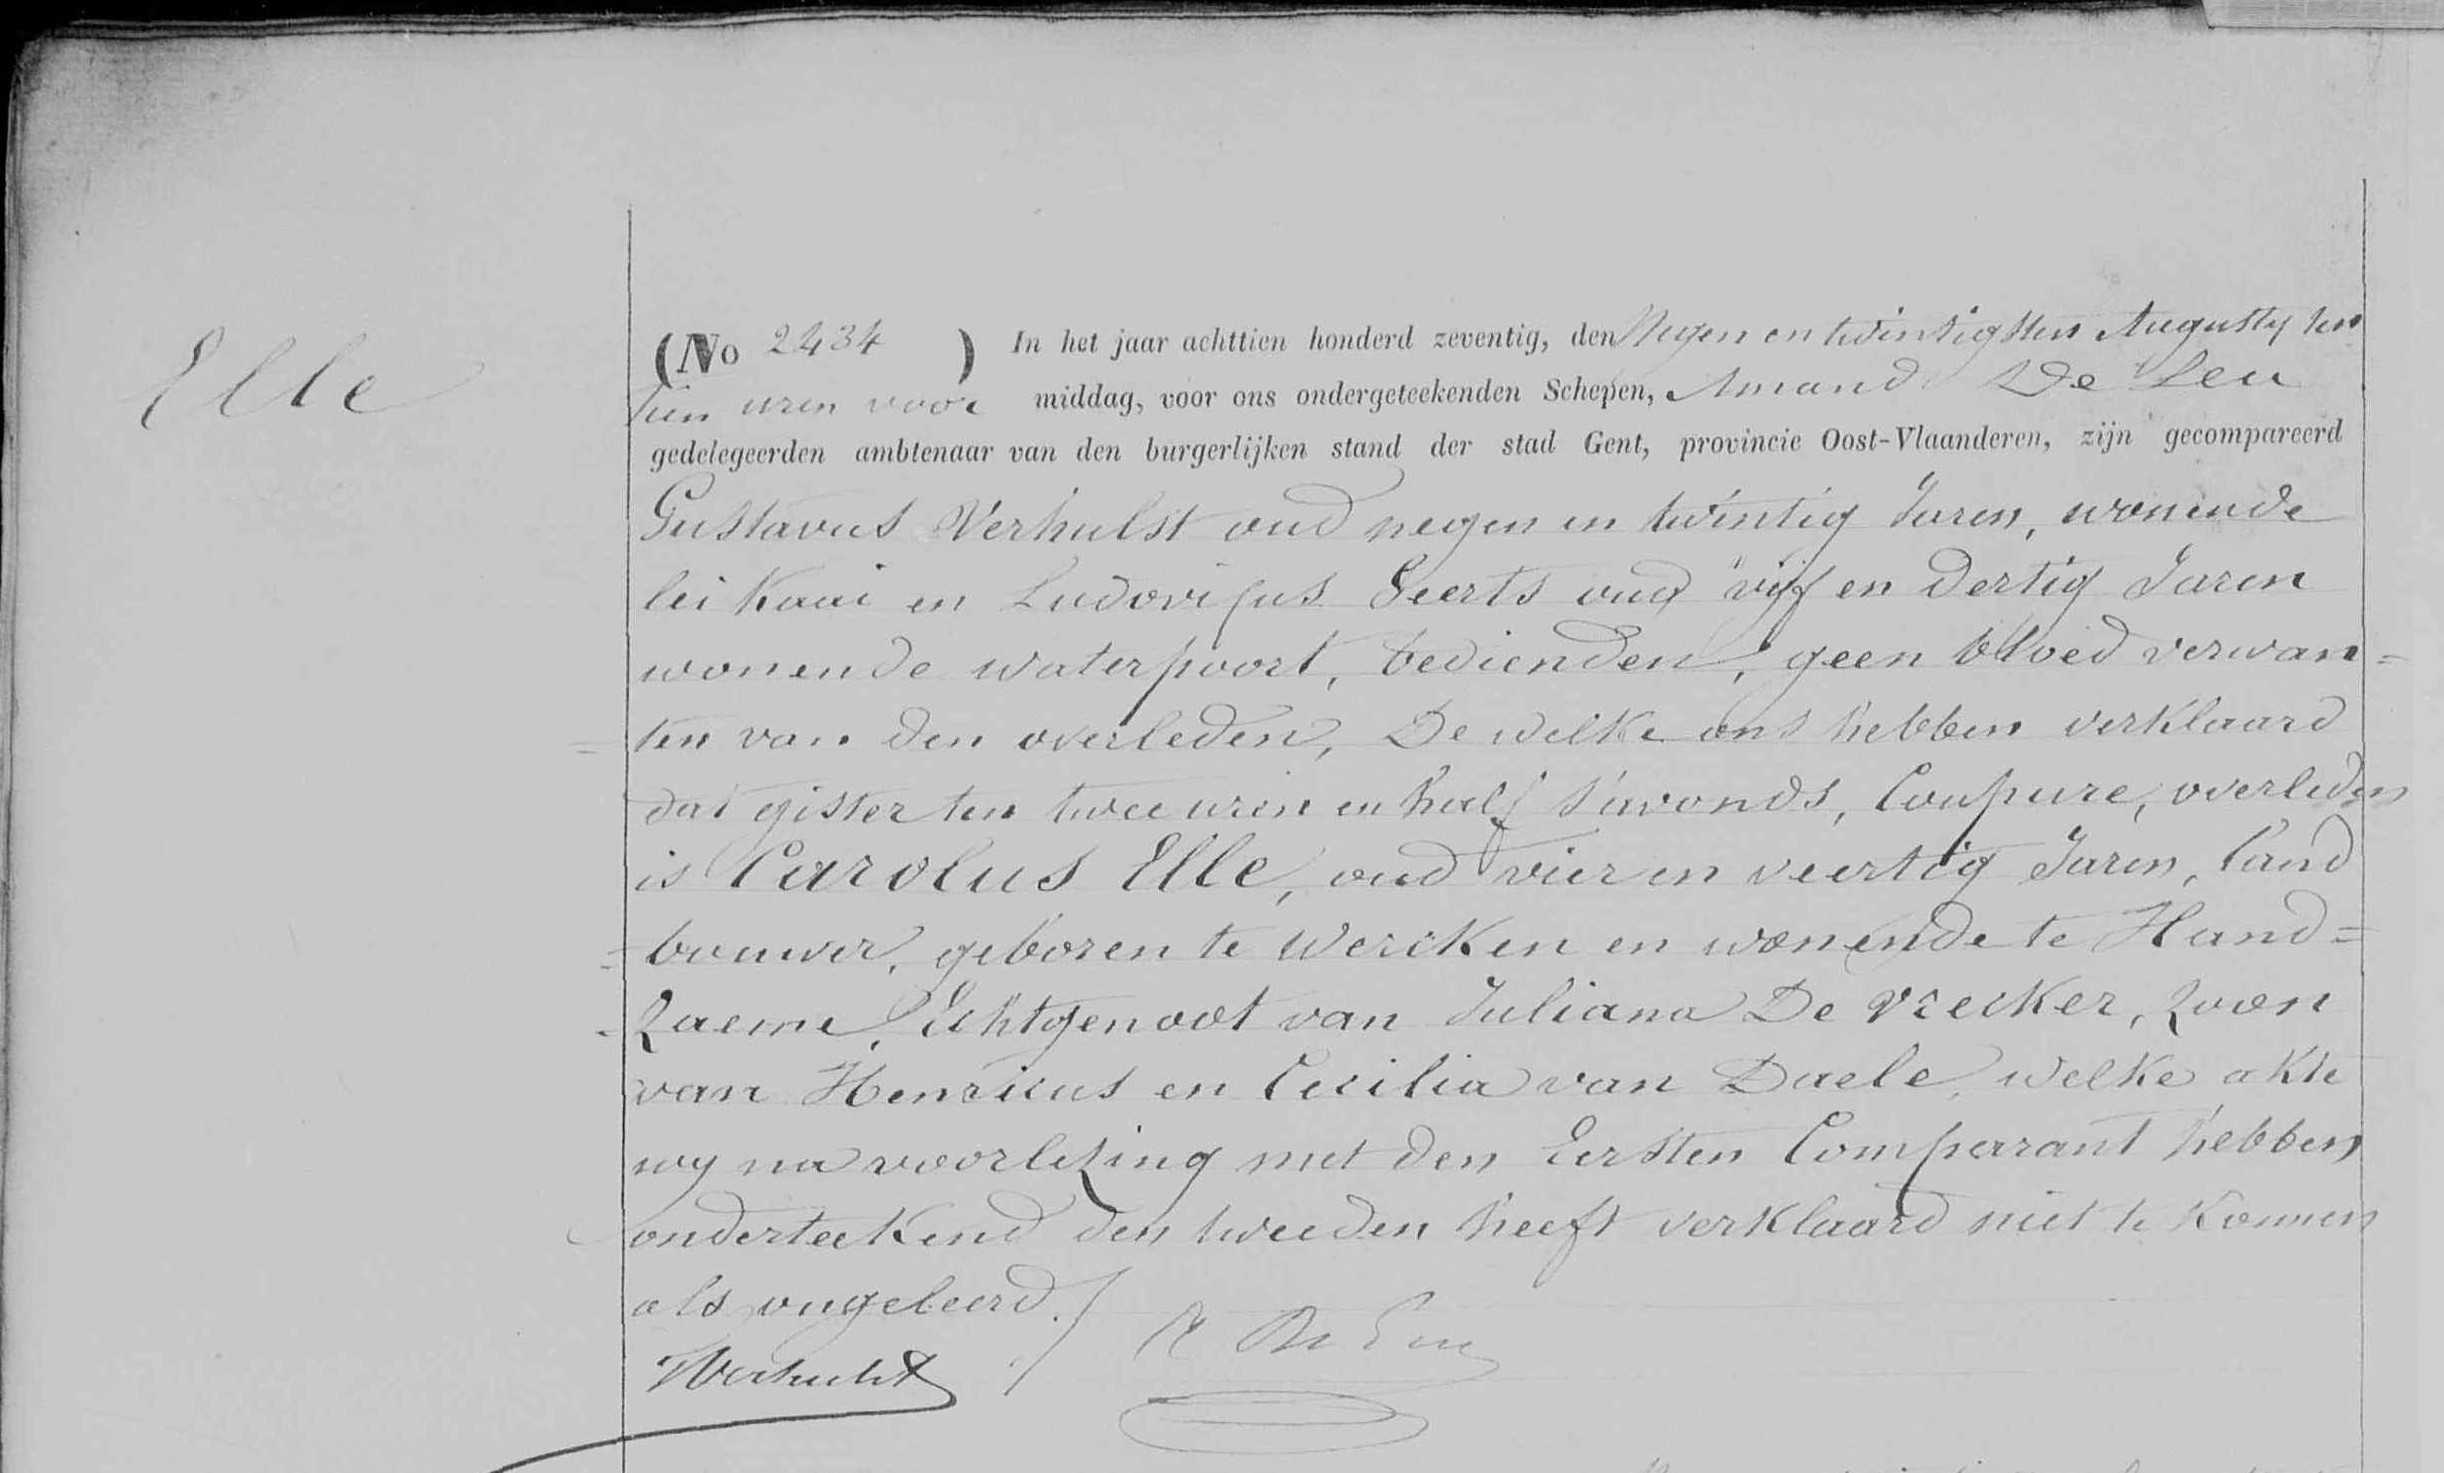 Elle
(No 2434 ) In het jaar achttien honderd zeventig, den Negen en twintigsten Augusty ten
tien uren voor middag, voor ons ondergeteekenden Schepen, Amand De Leu
gedelegeerden ambtenaar van den burgerlijken stand der stad Gent, provincie Oost-Vlaanderen, zijn gecompareerd
Gustavus Verhulst oud negen en twintig Jaren, wonende
lei Kaai en Ludovicus Geerts oud vijf en dertig Jaren
wonende waterpoort, bedienden, geen bloed verwan=
=ten van den overleden, De welke ons hebben verklaard
dat gister ten twee uren en half s'avonds, Coupure, overleden
is Carolus Elle, oud vier en veertig Jaren, land
=bouwer, geboren te Wercken en wonende te Hand=
-zaeme, Echtgenoot van Juliana De Vrecker, zoon
van Henricus en Cecilia van Daele, welke akte
wy na voorlezing met den Eersten Comparant hebben
onderteekend den tweeden heeft verklaard niet te konnen
als ongeleerd./
Verhulst / A De Leu